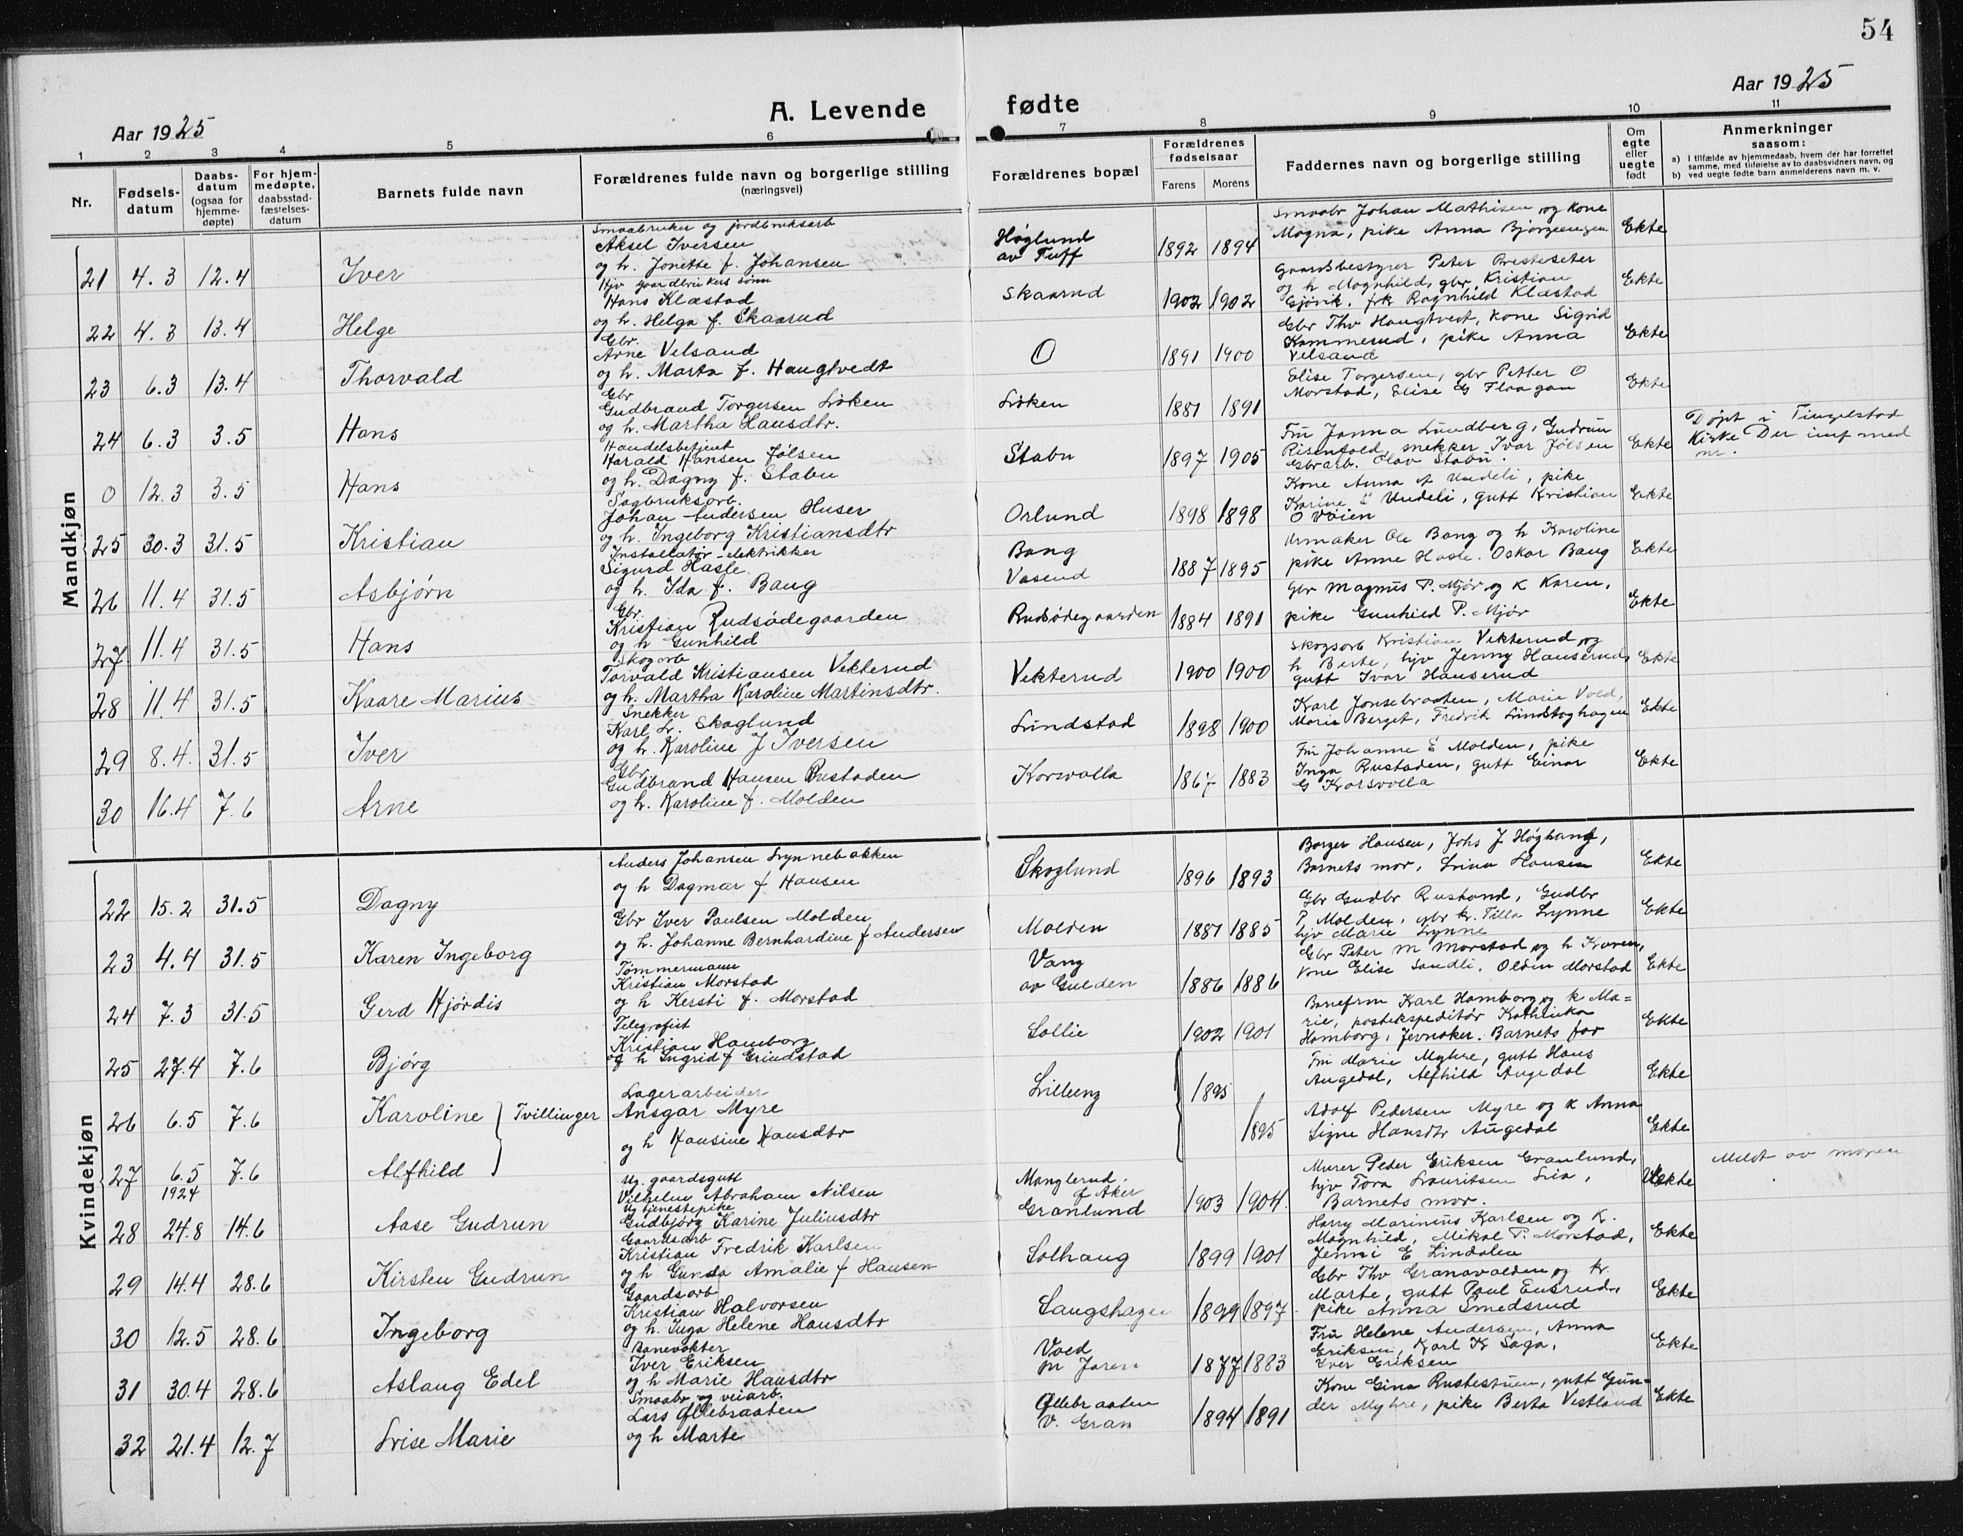 54
Aar 1925
A. Levende fødte
Aar 1925
1 2 3 4 5 6 7 8 9 10 11
Nr.
Fødsels-
datum
Daabs-
datum
(ogsaa for
hjemme-
døpte)
For hjem-
medøpte,
daabsstad-
fæstelses-
datum
Barnets fulde navn
Forældrenes fulde navn og borgerlige stilling
(næringsvei)
Forældrenes bopæl
Forældrenes
fødselsaar
Farens Morens
Faddernes navn og borgerlige stilling
Om
egte
eller
uegte
født
Anmerkninger
saasom:
a) i tilfælde av hjemmedaab, hvem der har forrettet
samme, med tilføielse av to daabsvidners navn, og
b) ved uegte fødte barn anmelderens navn m. v.
Mandkjøn
21 4.3 12.4 Iver
Smaabruker og jordbruksarb
Aksel Iversen
og h. Jonette f. Johansen
Høglund
av Tuff
1892 1894
Smaabr Johan Mathisen og kone
Magna, pike Anna
Ekte
22 4.3 13.4 Helge
Hjv gaardbrukers sønn
Hans Klæstad
og h. Helga f. Skaarud
Skaarud
1902 1902
Gaardsbestyrer Peter Presteseter
og h Magnhild, gbr. Kristian
Gjøvik, frk Ragnhild Klæstad
Ekte
23 6.3 13.4 Thorvald
Gbr.
Arne Velsand
og h. Marta f. Haugtvedt
O
1891 1900
Gbr Thv Haugtvedt, kone Sigrid
Kammerud, pike Anna
Velsand
Ekte
24 6.3 3.5 Hans
Gbr
Gudbrand Torgersen Løken
og h. Martha Hansdtr.
Løken
1881 1891
Elise Torgersen, gbr Petter O
Morstad, Elise G Flaagan
Ekte
O 12.3 3.5 Hans
Handelsbetjent
Harald Hansen Jølsen
og h. Dagny f. Stabu
Stabu
1897 1905
Fru Janna Lundberg, Gudrun
Risenfald, snekker Ivar Jølsen
Gbrarb. Olav Stabu.
Ekte
Døpt i Tingelstad
Kirke Der inf med
nr.
25 30.3 31.5 Kristian
Sagbruksorb.
Johan Andersen Huser
og h. Ingeborg Kristiansdtr
Orlund
1898 1898
Kone Anna A Undeli, pike
Karine L Undeli, gutt Kristian
O Vøien
Ekte
26 11.4 31.5 Asbjørn
Installatør-elektrikker
Sigurd Hasle
og h. Ida f. Bang
Bang
Vasend
1887 1895
Urmaker Ole Bang og h Karoline
pike Anne Hasle. Oskar Bang
Ekte
27 11.4 31.5 Hans
Gbr.
Kristian Rudsødegaarden
og h Gunhild
Rudsødegaarden
1884 1891
Gbr Magnus P. Mjør og K Karen,
pike Gunhild P. Mjør
Ekte
28 11.4 31.5 Kaare Marius
Skogorb
Torvald Kristiansen Vekterud
og h. Martha Karoline Martinsdtr.
Vekterud
1900 1900
Skogsorb Kristian Vekterud og
h Berte, hjv Jenny Hanserud,
gutt Ivar Hanserud
Ekte
29 8.4. 31.5 Iver
Snekker
Karl L. Skoglund
og h. Karoline J Iversen
Lindstad
1898 1900
Karl Jonsebraaten, Marie Vold,
Marie Berget, Fredrik Lindstoghagen
Ekte
30 16.4 7.6 Arne
Gbr
Gudbrand Hansen Rustaden
og h. Karoline f. Molden
Korsvolla
1867 1883
Fru Johanne E Molden, pike
Inga Rustaden, gutt Einar
G Korsvolla
Ekte
Kvindekjøn
22 15.2 31.5 Dagny
Anders Johansen Lynnebakken
og h Dagmar f Hansen
Skoglund
1896 1893
Borger Hansen, Johs J Høghaug,
Barnets mor, Lina Hansen
Ekte
23 4.4 31.5 Karen Ingeborg
Gbr Iver Paulsen Molden
og h. Johanne Bernhardine f Andersen
Molden
1881 1885
Gbr Gudbr Rustand, Gudbr
P. Molden, gbr kr. Tilla Lynne
hjv Marie Lynne
Ekte
24 7.3 31.5 Gerd Hjørdis
Tømmermann
Kristian Morstad
og h Kersti f. Morstad
Vang
av Gulden
1886 1886
Gbr Peter M Morstad og h Karen,
kone Elise Sandli, Oldin Morstad
Ekte
25 27.4 7.6 Bjørg
Telegrafist
Kristian Hamborg
og h Ingrid f Grindstad
Sollie
1902 1901
Banefrm Karl Hamborg og k Ma=
rie, postekspeditør Kathinka
Hamborg, Jevnaker. Barnets far
Ekte
26 6.5 7.6 Karoline } Tvillinger
Lagerarbeider
Ansgar Myre
og h Hansine Hansdtr
Lilleeng
1895
Fru Marie Myhre, gutt Hans
Augedal, Alfhild Augedal
Ekte
27 6.5 7.6 Alfhild
1895
Adolf Pedersen Myre og K Anna
Signe Hansdtr Augedal
Ekte
1924
28 24.8 14.6 Aase Gudrun
Ug. gaardsgutt
Vilhelm Abraham Nilsen
Ug tjenestepike
Gudbjørg Karine Juliusdtr
Manglerud.
Ø Aker
Granlund
1903 1904.
Murer Peder Eriksen Granlund,
hjv Tora Lauritsen Lia,
Barnets mor.
Uekte
Meldt av moren
29 14.4 28.6 Kirsten Gudrun
Gaardsarb
Kristian Fredrik Karlsen
og h Gunda Amalie f Hansen
Solhaug
1899 1901
Harry Marinius Karlsen og K.
Magnhild, Mikal P. Morstad,
Jenni E Lindalen
Ekte
30 12.5 28.6 Ingeborg
Gaardsorb
Kristian Halvorsen
og h. Inga Helene Hansdtr
Saugshagen
1899 1897
Gbr Thv Granavolden og kr.
Marte, gutt Paul Eusrud,
pike Anna Smedsrud
Ekte
31 30.4 28.6 Aslaug Edel
Banevokter
Iver Eriksen
og h Marie Hansdtr
Voed
pr Jaren
1877 1883
Fru Helene Andersen, Anna
Eriksen, Karl K Saga,
Iver Eriksen
Ekte
32 21.4 12.7 Lise Marie
Smaabr og veiarb.
Lars Øllebraaten
og h Marte
Øllebraaten
v. Gran
1894 1891
Kone Gina Rustestuen, gutt Gun=
der Myhre, pike Berta Vestland
Ekte